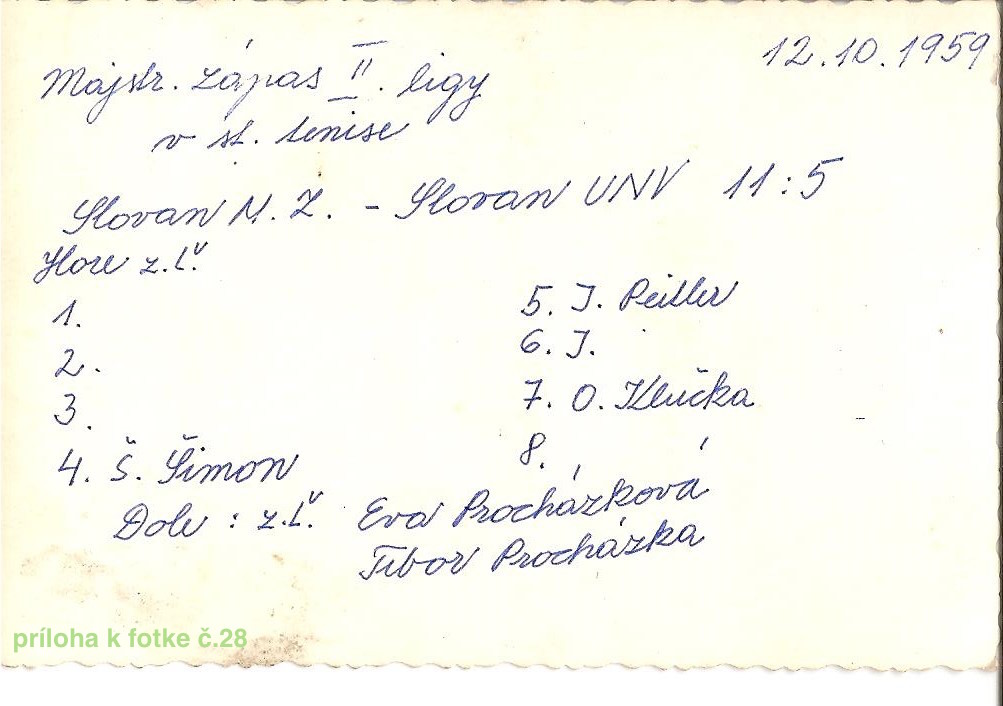 12.10.1959
Majstr. zápas II. ligy
v st. tenise
Slovan N. Z. - Slovan UNV 11:5
Hore z.Ľ.
1.
2.
3.
4. Š. Šimon
5. J. Peitler
6. J.
7. O. Klučka
8.
Dole : z.Ľ. Eva Procházková
Tibor Procházka
príloha k fotke č.28